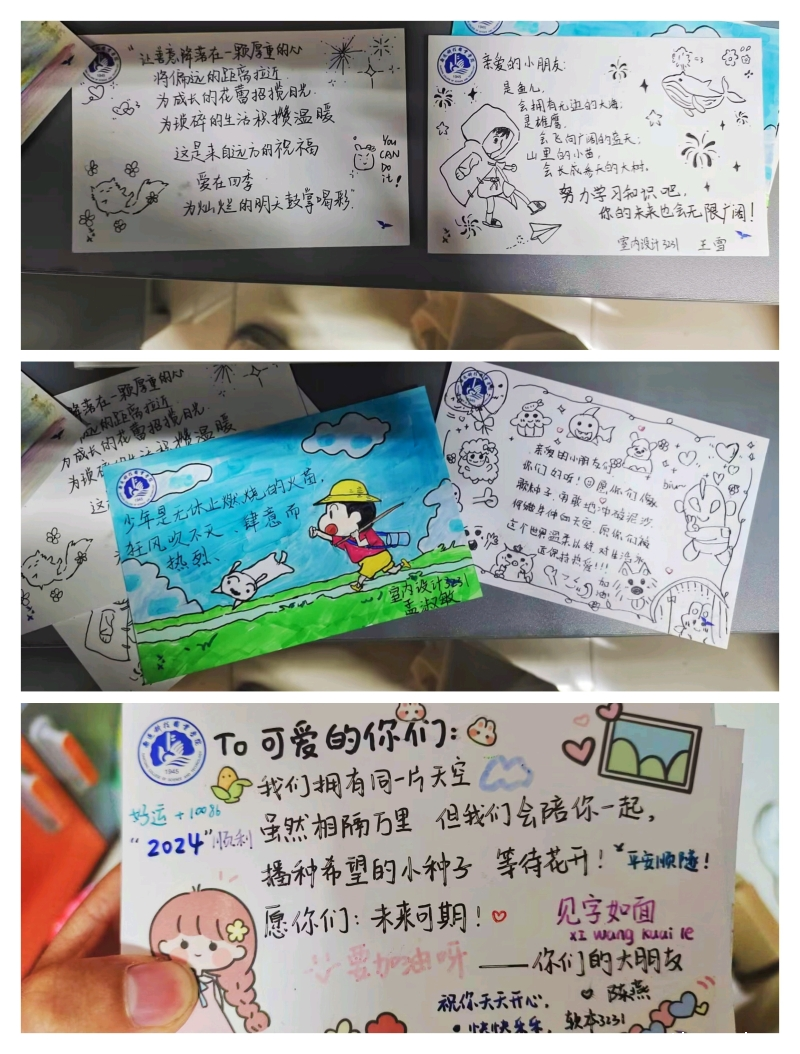 “让善意降落在一颗厚重的心
将偏远的距离拉近
为成长的花蕾招揽月光
为琐碎的生活积攒温暖
这是来自远方的祝福
爱在四季
为灿烂的明天鼓掌喝彩”
You
CAN
Do
it!
亲爱的小朋友:
是鱼儿,
会拥有无边的大海;
是雄鹰,
会飞向广阔的蓝天;
山里的小苗,
会长成参天的大树。
努力学习知识吧,
你的未来也会无限广阔!
室内设计3231 王雪
降落在一颗厚重的心
的距离拉近
为成长的花蕾招揽月光
为琐碎的生活积攒温暖
少年是无休止燃烧的火苗,
狂风吹不灭、肆意而
热烈、
室内设计3231
孟淑敏
亲爱的小朋友们
你们好呀!愿你们像
这个世界温柔以待 对生活永
远保持热爱!!!
biu~
加
油
1945
To 可爱的你们:
我们拥有同一片天空
好运+10086
虽然相隔万里 但我们会陪你一起,
“2024”顺利
播种希望的小种子 等待花开!
平安顺遂!
愿你们: 未来可期!
见字如面
xI wang kuai le
要加油呀
——你们的大朋友
陈燕
祝你天天开心,
快快乐乐, 软本3231